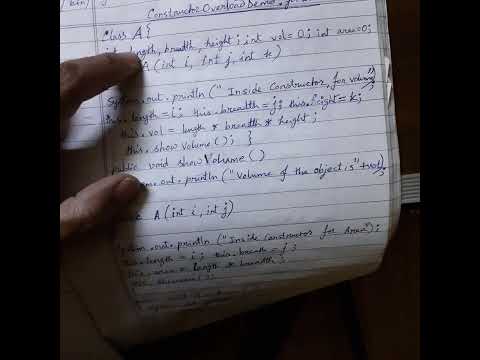 ConstructorOverloadDemo.java
Class A {
length, breadth, height; int vol=0; int area=0;
A (int i, int j, int k)
System.out.println (" Inside Constructor, for volume");
this.length = i; this.breadth = j; this.height = k;
this.vol = length * breadth * height;
this.showVolume(); }
public void showVolume()
.out.println ("Volume of the object is" + vol);
A (int i, int j)
.out.println ("Inside Constructor for Area");
length = i; this.breadth = j;
length * breadth